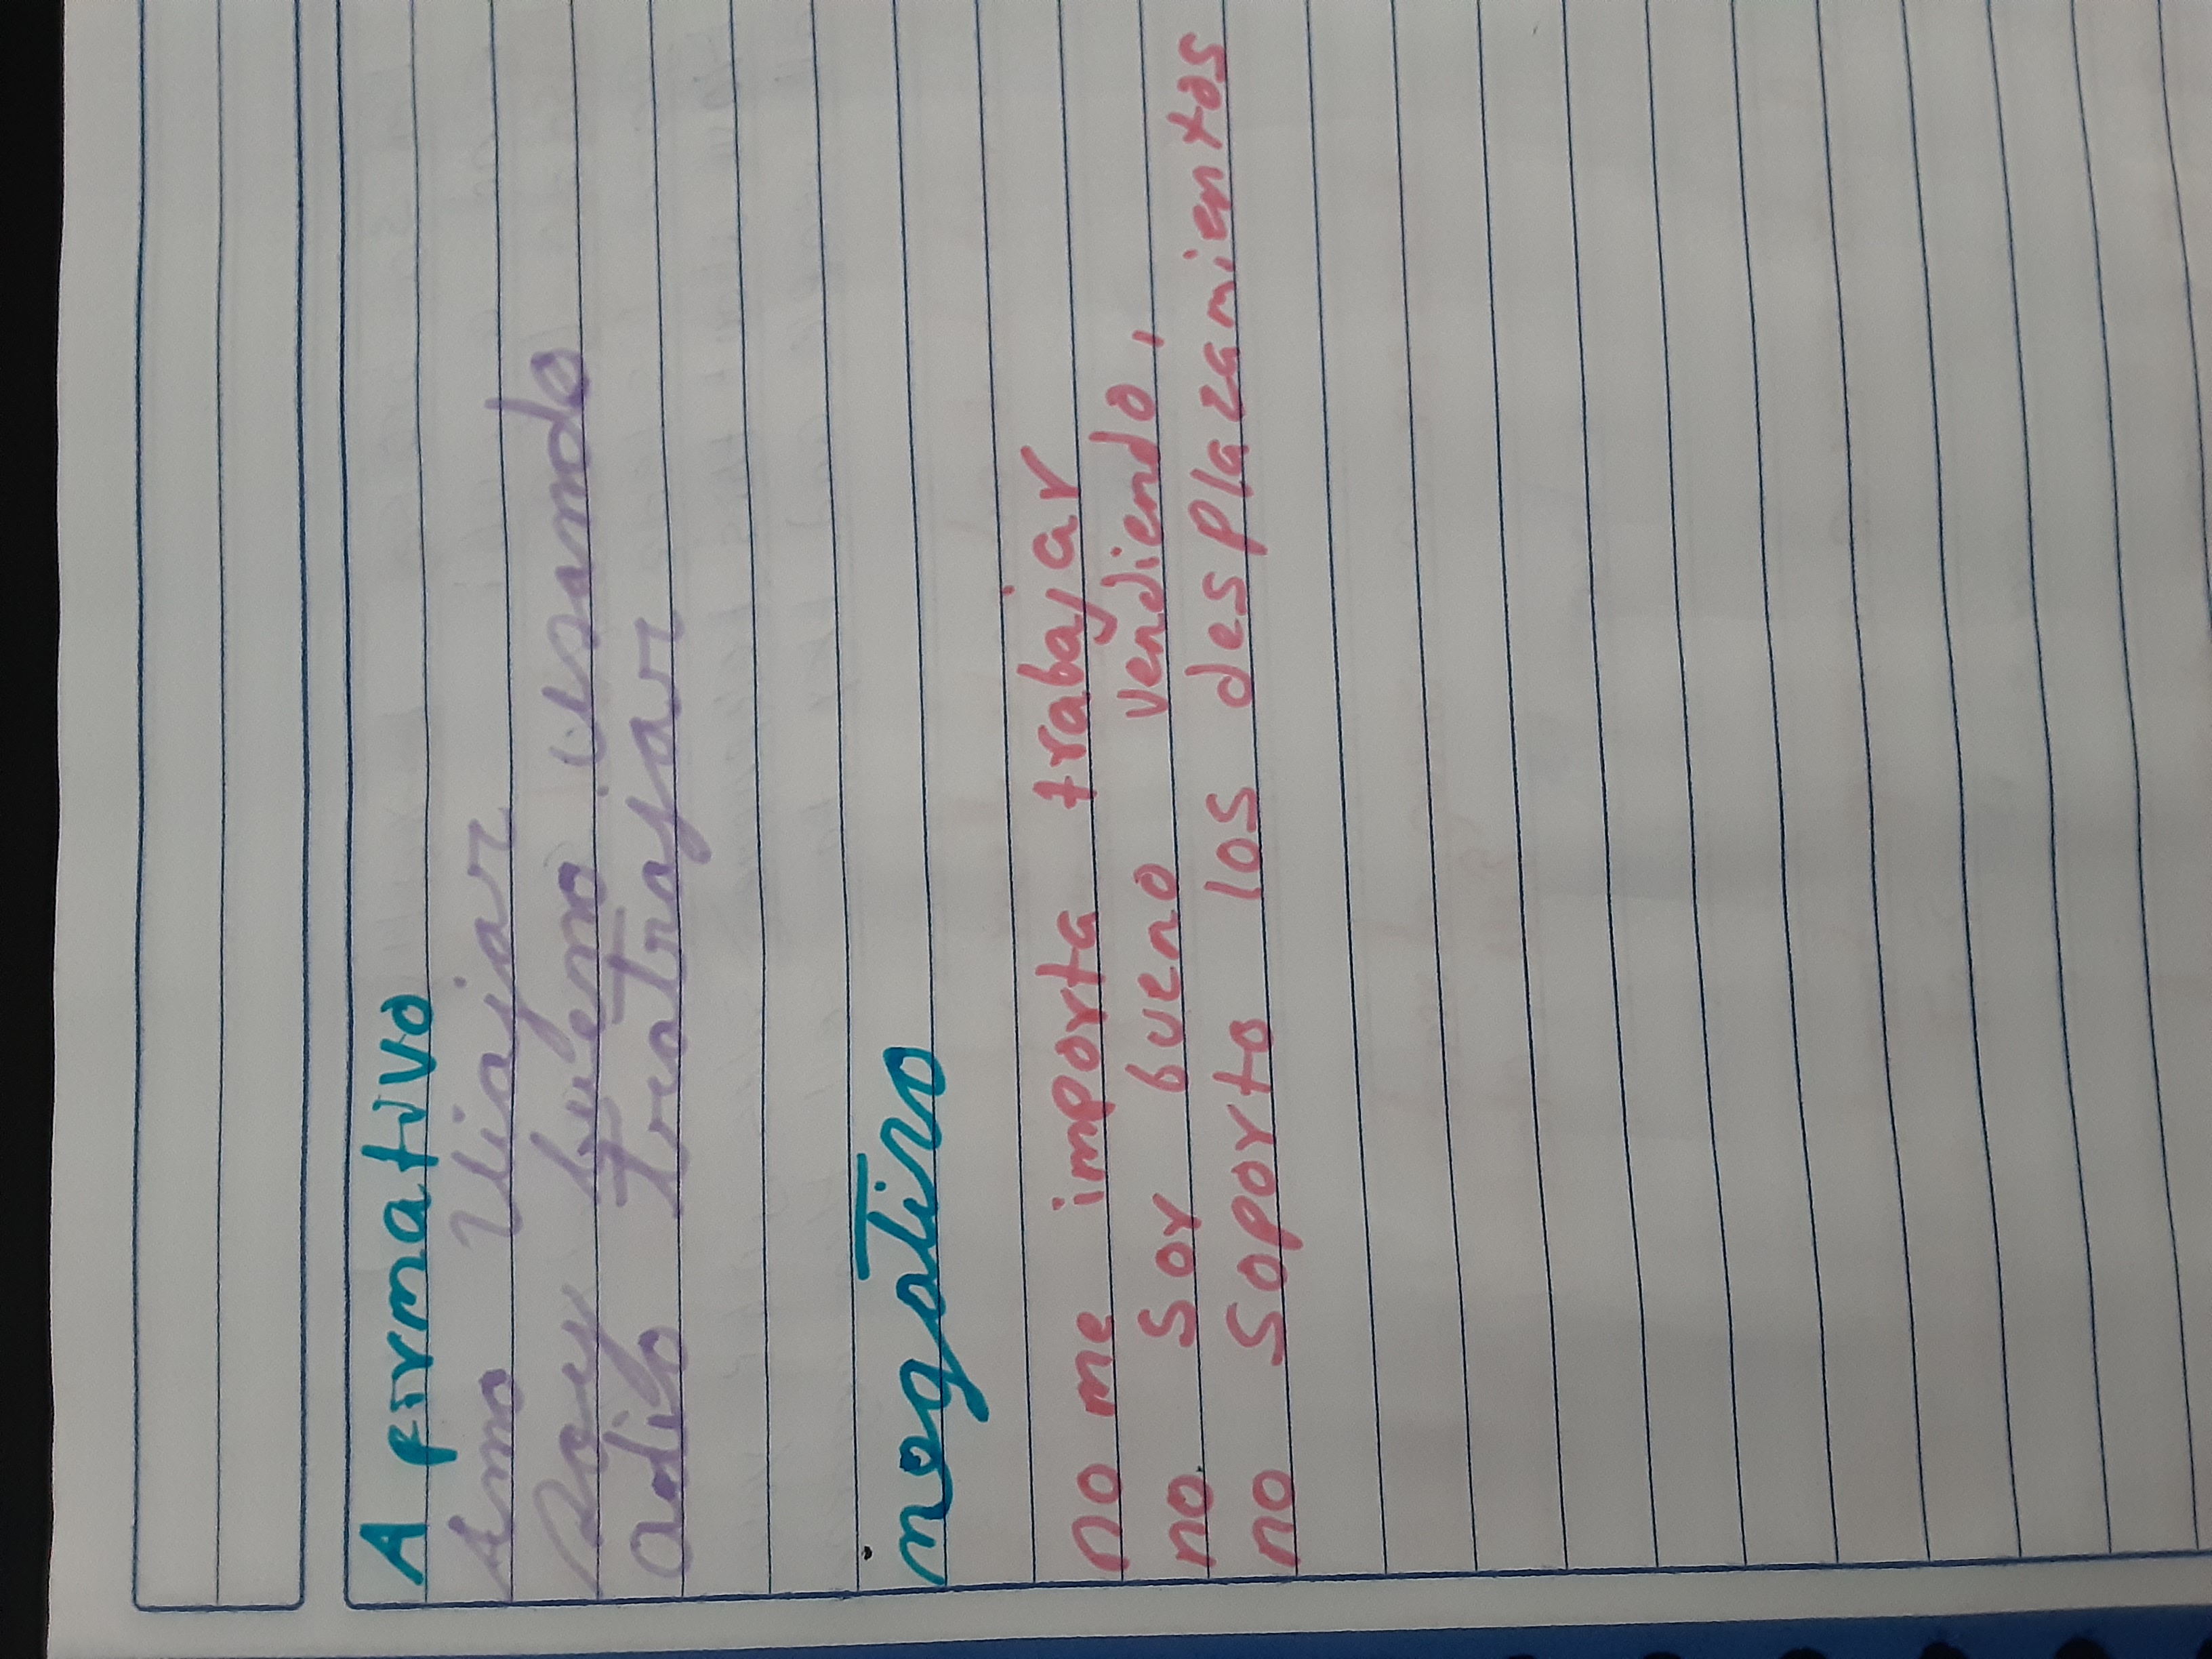 Afirmativo
Amo viajar
Soy bueno usando
adio trabajar
negativo
no me importa trabajar
no sor bueno vendiendo,
no soporto los desplazamientos